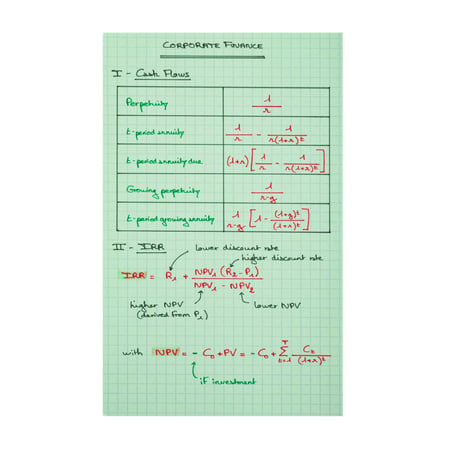 CORPORATE FINANCE
I - Cash Flows
Perpetuity 1/r
t-period annuity 1/r - 1/r(1+r)^t
t-period annuity due (1+r)[1/r - 1/r(1+r)^t]
Growing perpetuity 1/r-g
t-period growing annuity 1/r-g [1 - (1+g)^t/(1+r)^t]
II - IRR
lower discount rate
higher discount rate
IRR = R₁ + NPV₁ (R₂ - P₁)/NPV₁ - NPV₂
higher NPV
(derived from P₁)
lower NPV
with NPV = - C₀ + PV = - C₀ + Σ^T_t=1 C_t/(1+r)^t
if investment